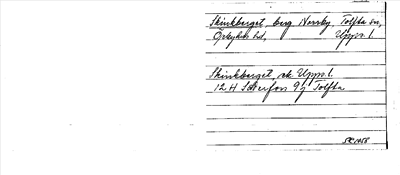 Skinkberget, berg Norrby, Tolfta sn,
Örbyhus hd, Upps. l.
Skinkberget, ek. Upps. l.
12 H Söderfors 9 j Tolfta